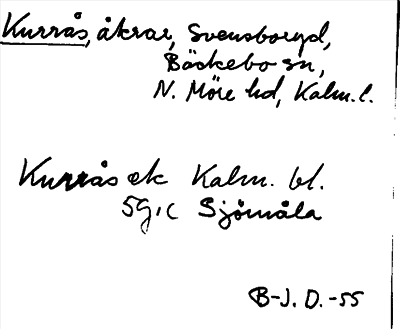 Kurrås, åkrar, Svensboryd,
Bäckebo sn,
N. Möre hd, Kalm. l.
Kurrås ek Kalm. bl.
5g, c Sjömåla
B-J. D. -55